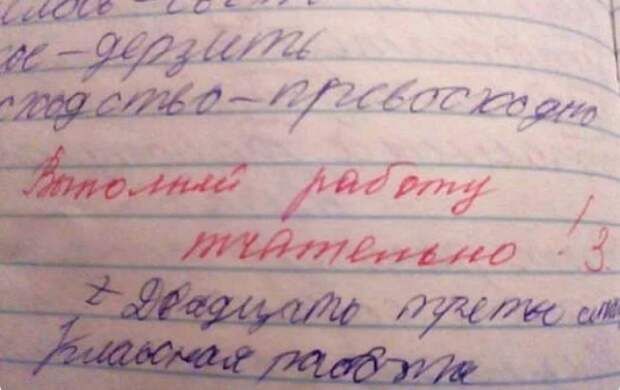 – дерзить
сходство – превосходно
Выполняй работу
тчательно! 3.
Двадцать третье
Классная работа